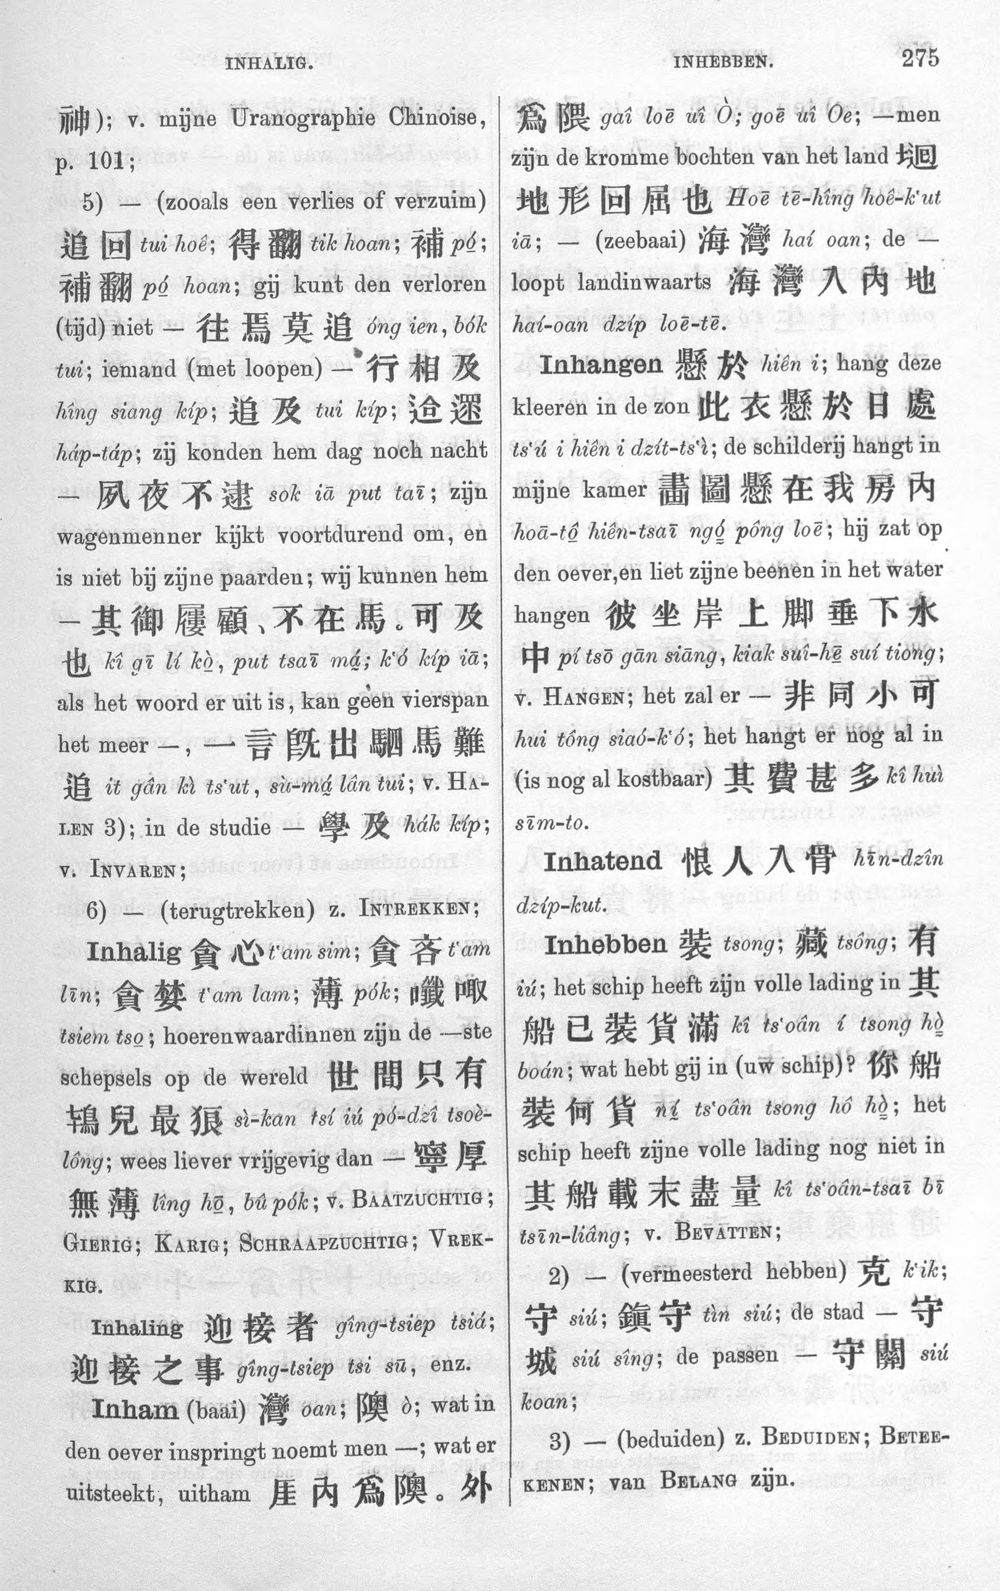 INHALIG.
INHEBBEN.
275
神); v. mijne Uranographie Chinoise,
p. 101;
5) — (zooals een verlies of verzuim)
追回 tui hoê; 得翻 tik hoan; 補 pó;
補翻 pó hoan; gij kunt den verloren
(tijd) niet — 往焉莫追 óng ien, bók
tui; iemand (met loopen) — 行相及
hîng siang kíp; 追及 tui kíp; 迨遝
háp-táp; zij konden hem dag noch nacht
— 夙夜不逮 sok iā put taī; zijn
wagenmenner kijkt voortdurend om, en
is niet bij zijne paarden; wij kunnen hem
— 其御屢顧、不在馬。可及
也 kî gī lí kò, put tsaī má; k‘ó kíp iā;
als het woord er uit is, kan geen vierspan
het meer —, 一言旣出駟馬難
追 it gân kì ts‘ut, sù-má lân tui; v. HA-
LEN 3); in de studie — 學及 hák kíp;
v. INVAREN;
6) — (terugtrekken) z. INTREKKEN;
Inhalig 貪心 t‘am sim; 貪吝 t‘am
līn; 貪婪 t‘am lam; 薄 pók; 嚱呶
tsiem tso; hoerenwaardinnen zijn de —ste
schepsels op de wereld 世間只有
鴇兒最狼 sì-kan tsí iú pó-dzî tsoè-
lông; wees liever vrijgevig dan — 寧厚
無薄 lîng hō, bû pók; v. BAATZUCHTIG;
GIERIG; KARIG; SCHRAAPZUCHTIG; VREK-
KIG.
Inhaling 迎接者 gîng-tsiep tsiá;
迎接之事 gîng-tsiep tsi sū, enz.
Inham (baai) 灣 oan; 隩 ò; wat in
den oever inspringt noemt men —; wat er
uitsteekt, uitham 厓內爲隩。外
爲隈 gaî loē uî Ò; goē uî Oe; —men
zijn de kromme bochten van het land 坰
地形回屈也 Hoē tē-hîng hoê-k‘ut
iā; — (zeebaai) 海灣 haí oan; de —
loopt landinwaarts 海灣入內地
haí-oan dzíp loē-tē.
Inhangen 懸於 hiên i; hang deze
kleeren in de zon 此衣懸於日處
ts‘ú i hiên i dzít-ts‘ì; de schilderij hangt in
mijne kamer 畵圖懸在我房內
hoā-tô hiên-tsaī ngó pông loē; hij zat op
den oever, en liet zijne beenen in het water
hangen 彼坐岸上脚垂下水
中 pí tsō gān siāng, kiak suî-hē suí tiong;
v. HANGEN; het zal er — 非同小可
hui tông siaó-k‘ó; het hangt er nog al in
(is nog al kostbaar) 其費甚多 kî huì
sīm-to.
Inhatend 恨人入骨 hīn-dzîn
dzíp-kut.
Inhebben 裝 tsong; 藏 tsông; 有
iú; het schip heeft zijn volle lading in 其
船已裝貨滿 kî ts‘oân í tsong hò
boán; wat hebt gij in (uw schip)? 你船
裝何貨 ní ts‘oân tsong hô hò; het
schip heeft zijne volle lading nog niet in
其船載末盡量 kî ts‘oân-tsaī bī
tsīn-liâng; v. BEVATTEN;
2) — (vermeesterd hebben) 克 k‘ik;
守 siú; 鎮守 tìn siú; de stad — 守
城 siú sîng; de passen — 守關 siú
koan;
3) — (beduiden) z. BEDUIDEN; BETEE-
KENEN; van BELANG zijn.